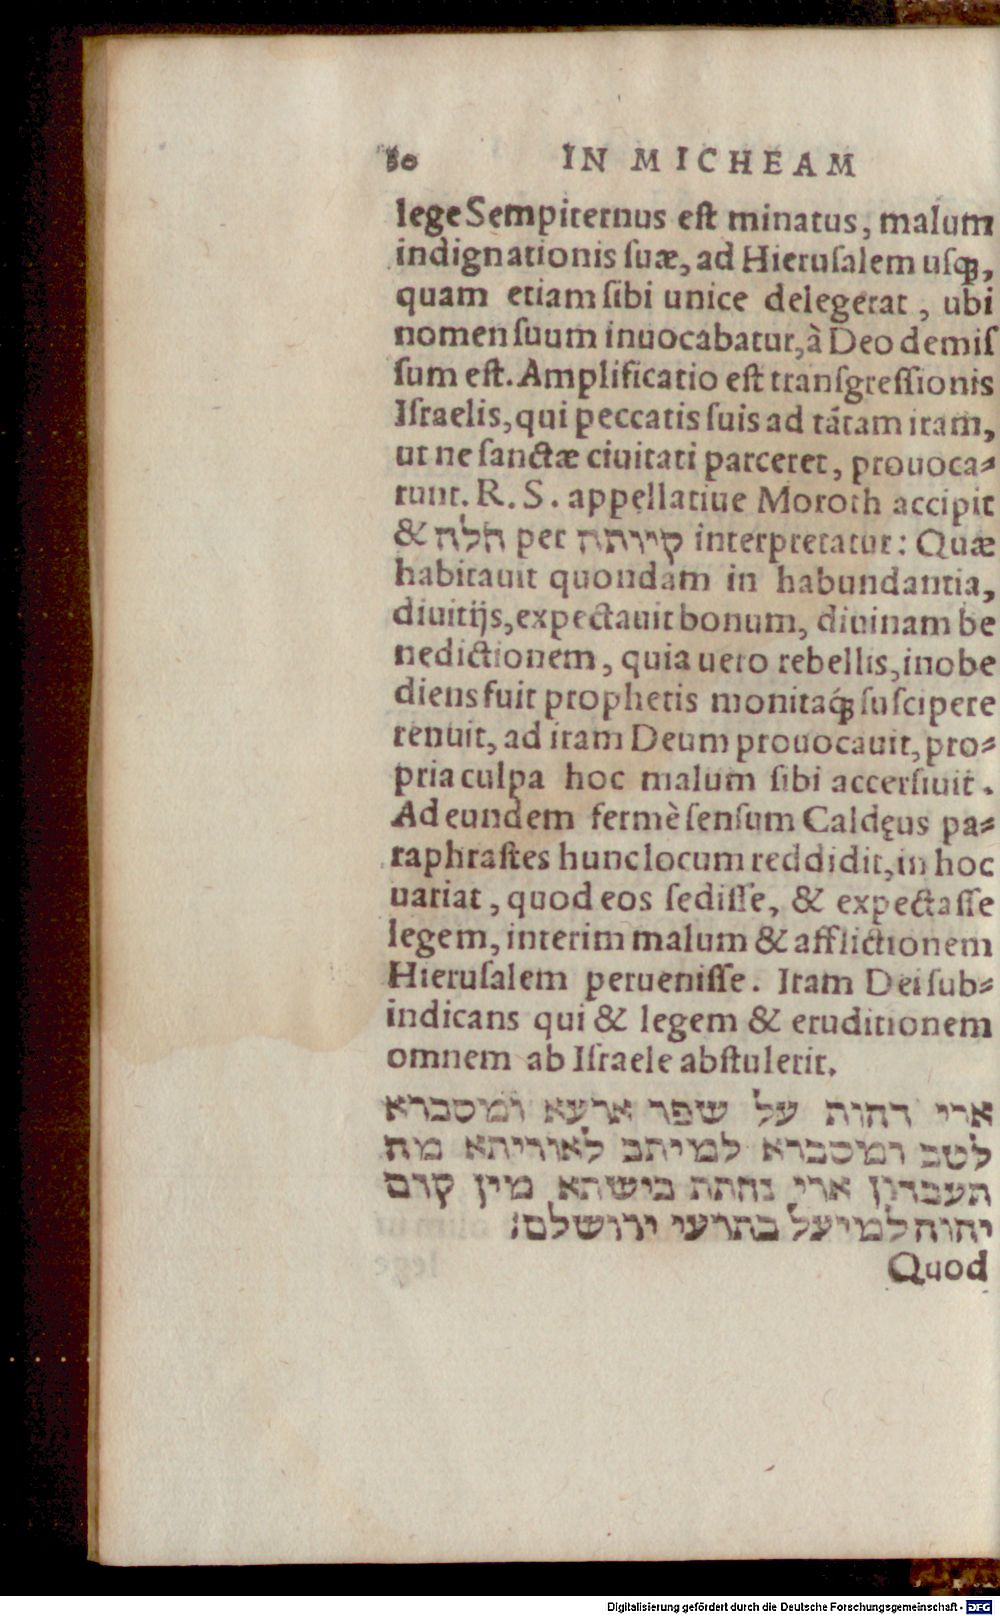 80 IN MICHEAM
lege Sempiternus eſt minatus, malum
indignationis ſuæ, ad Hieruſalem uſqꝫ,
quam etiam ſibi unice delegerat, ubi
nomen ſuum inuocabatur, à Deo demiſ
ſum eſt. Amplificatio eſt tranſgreſſionis
Iſraelis, qui peccatis ſuis ad tãtam iram,
ut ne ſanctæ ciuitati parceret, prouoca⸗
runt. R. S. appellatiue Moroth accipit
& חלה per קיותה interpretatur: Quæ
habitauit quondam in habundantia,
diuitijs, expectauit bonum, diuinam be
nedictionem, quia uero rebellis, inobe
diens fuit prophetis monitaq́ꝫ ſuſcipere
renuit, ad iram Deum prouocauit, pro⸗
pria culpa hoc malum ſibi accerſiuit.
Ad eundem fermè ſenſum Caldęus pa⸗
raphraſtes hunc locum reddidit, in hoc
uariat, quod eos ſediſſe, & expectaſſe
legem, interim malum & afflictionem
Hieruſalem perueniſſe. Iram Dei ſub⸗
indicans qui & legem & eruditionem
omnem ab Iſraele abſtulerit.
ארי דחות על שפר ארעא ומסברא
לטב ומסברא למיתב לאוריתא מה
תעבדון ארי נחתת בישתא מין קדם
יהוה למיעל בתרעי ירושלם:
Quod
Digitalisierung gefördert durch die Deutsche Forschungsgemeinschaft - DFG